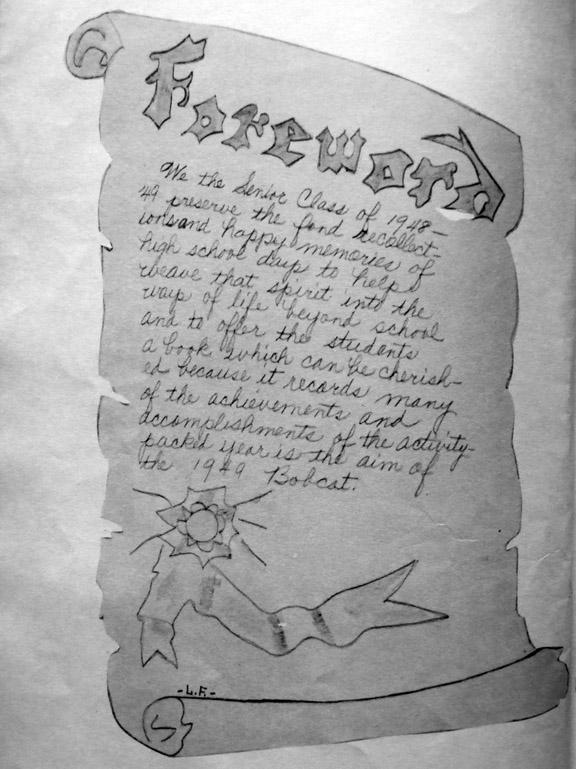 Foreword
We the Senior Class of 1948-
49 preserve the fond recollect-
ions and happy memories of
high school days to help
weave that spirit into the
ways of life beyond school
and to offer the students
a book which can be cherish-
ed because it records many
of the achievements and
accomplishments of the activity-
packed year is the aim of
the 1949 Bobcat.
-L.F.-